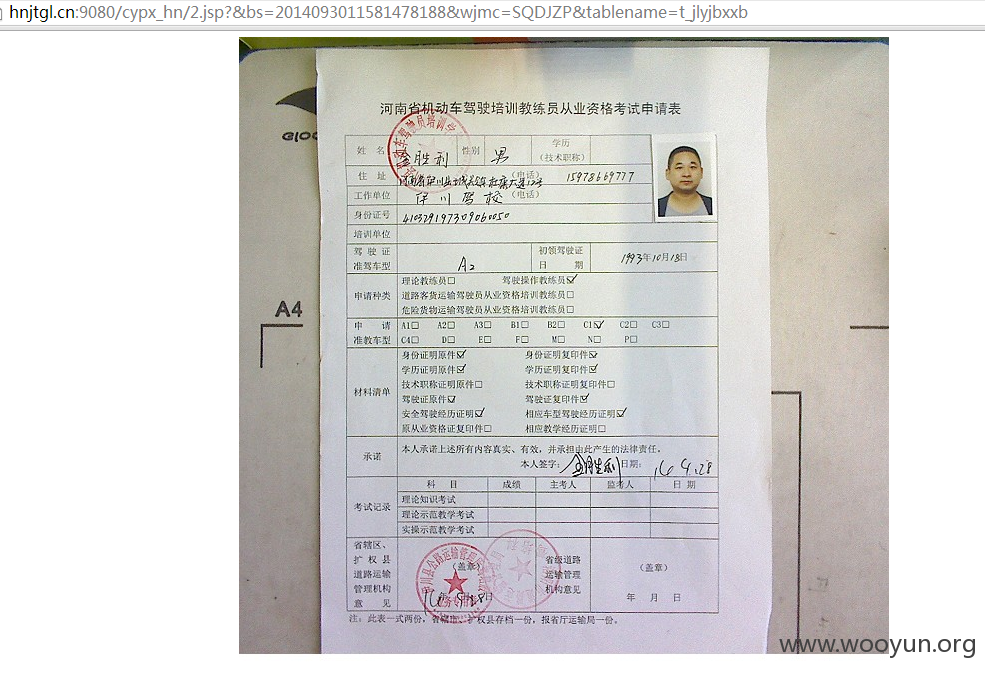 hnjtgl.cn:9080/cypx_hn/2.jsp?&bs=2014093011581478188&wjmc=SQDJZP&tablename=t_jlyjbxxb
河南省机动车驾驶培训教练员从业资格考试申请表
姓 名 金胜利 性别 男 学历（技术职称）
住 址 （电话） 15978669777
工作单位 伊川驾校 （电话）
身份证号 410329197309060050
培训单位
驾驶证准驾车型 A2 初领驾驶证日期 1993年10月18日
申请种类 理论教练员□ 驾驶操作教练员☑
道路客货运输驾驶员从业资格培训教练员□
危险货物运输驾驶员从业资格培训教练员□
申请准教车型 A1□ A2□ A3□ B1□ B2□ C1☑ C2□ C3□
C4□ D□ E□ F□ M□ N□ P□
材料清单 身份证明原件☑ 身份证明复印件☑
学历证明原件☑ 学历证明复印件☑
技术职称证明原件□ 技术职称证明复印件□
驾驶证原件☑ 驾驶证复印件☑
安全驾驶经历证明☑ 相应车型驾驶经历证明☑
原从业资格证复印件□ 相应教学经历证明□
承诺 本人承诺上述所有内容真实、有效，并承担由此产生的法律责任。
本人签字： 金胜利 日期：
考试记录 科 目 成绩 主考人 监考人 日 期
理论知识考试
理论示范教学考试
实操示范教学考试
省辖区、扩权县道路运输管理机构意见 （盖章） 年 月 日
省级道路运输管理机构意见 （盖章） 年 月 日
注：此表一式两份，省辖市、扩权县存档一份，报省厅运输局一份。
A4
www.wooyun.org